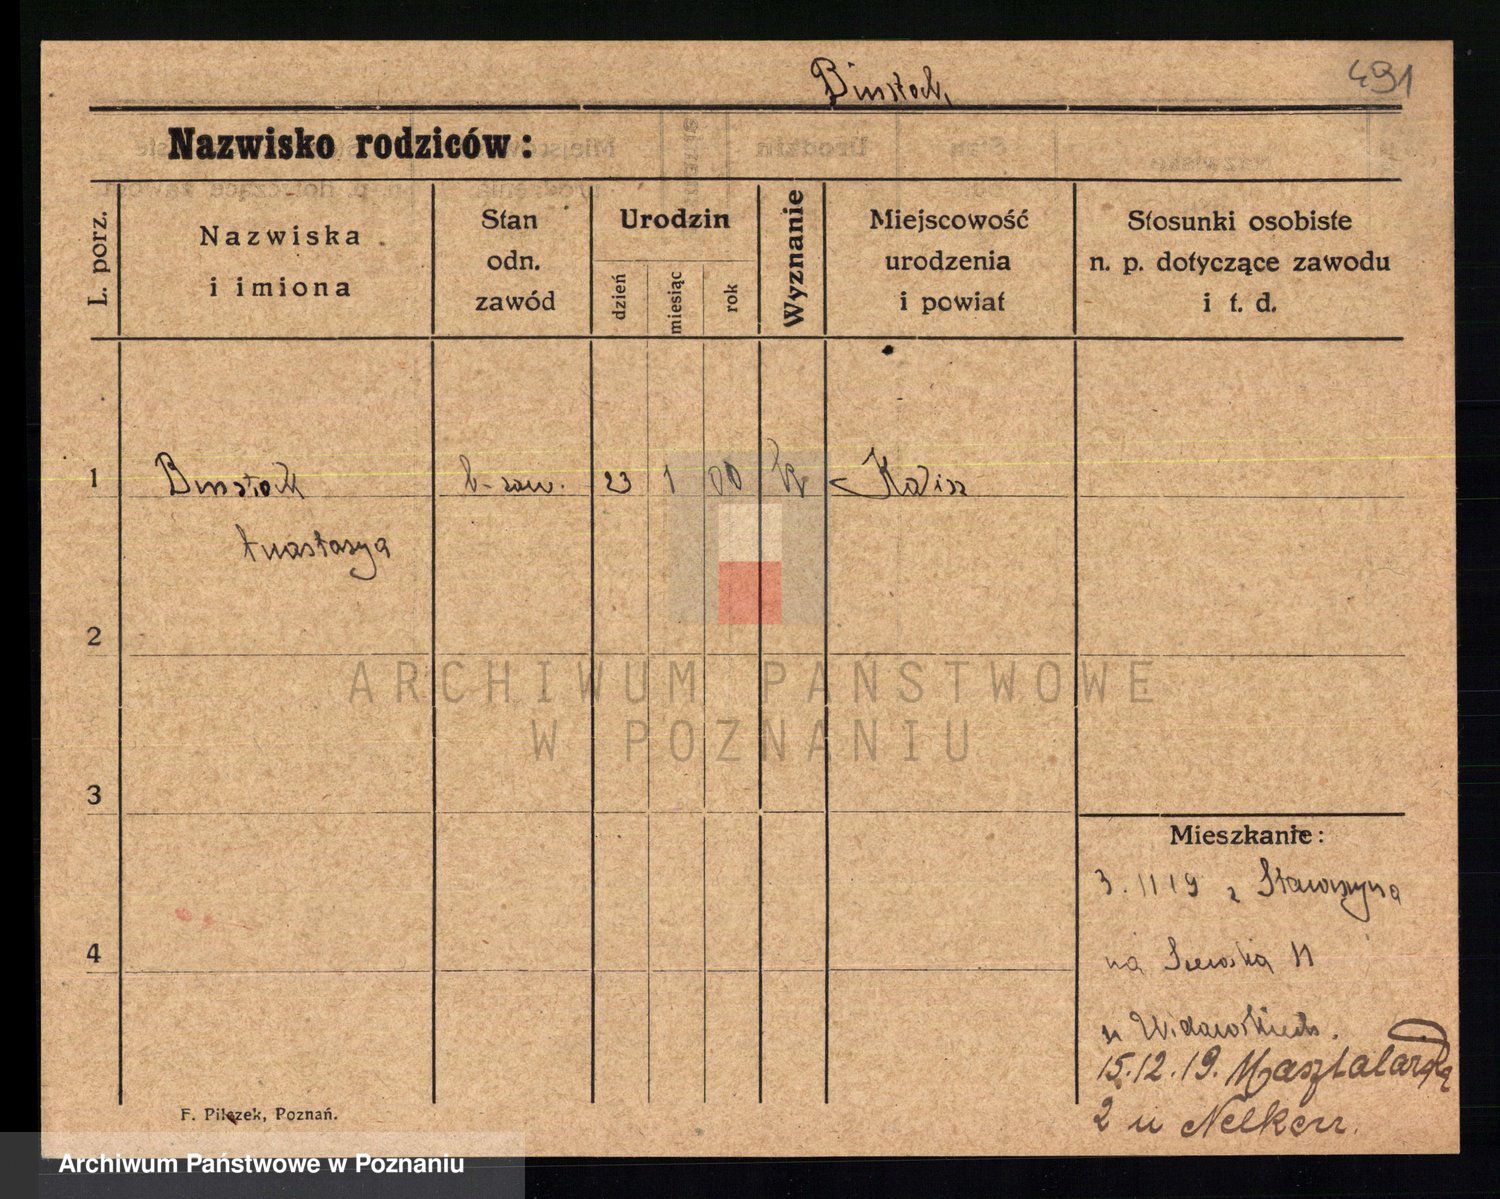 491
Nazwisko rodziców:
L. porz.
Nazwiska
i imiona
Stan
odn.
zawód
Urodzin
dzień
miesiąc
rok
Wyznanie
Miejscowość
urodzenia
i powiat
Stosunki osobiste
n. p. dotyczące zawodu
i t. d.
1
23 1 00
Kalisz
Anastazya
2
ARCHIWUM PAŃSTWOWE
W POZNANIU
3
4
Mieszkanie:
3. 11 19 z
na 11
u
15.12.19. Masztalarska
2 u Nelken.
F. Pilczek, Poznań.
Archiwum Państwowe w Poznaniu